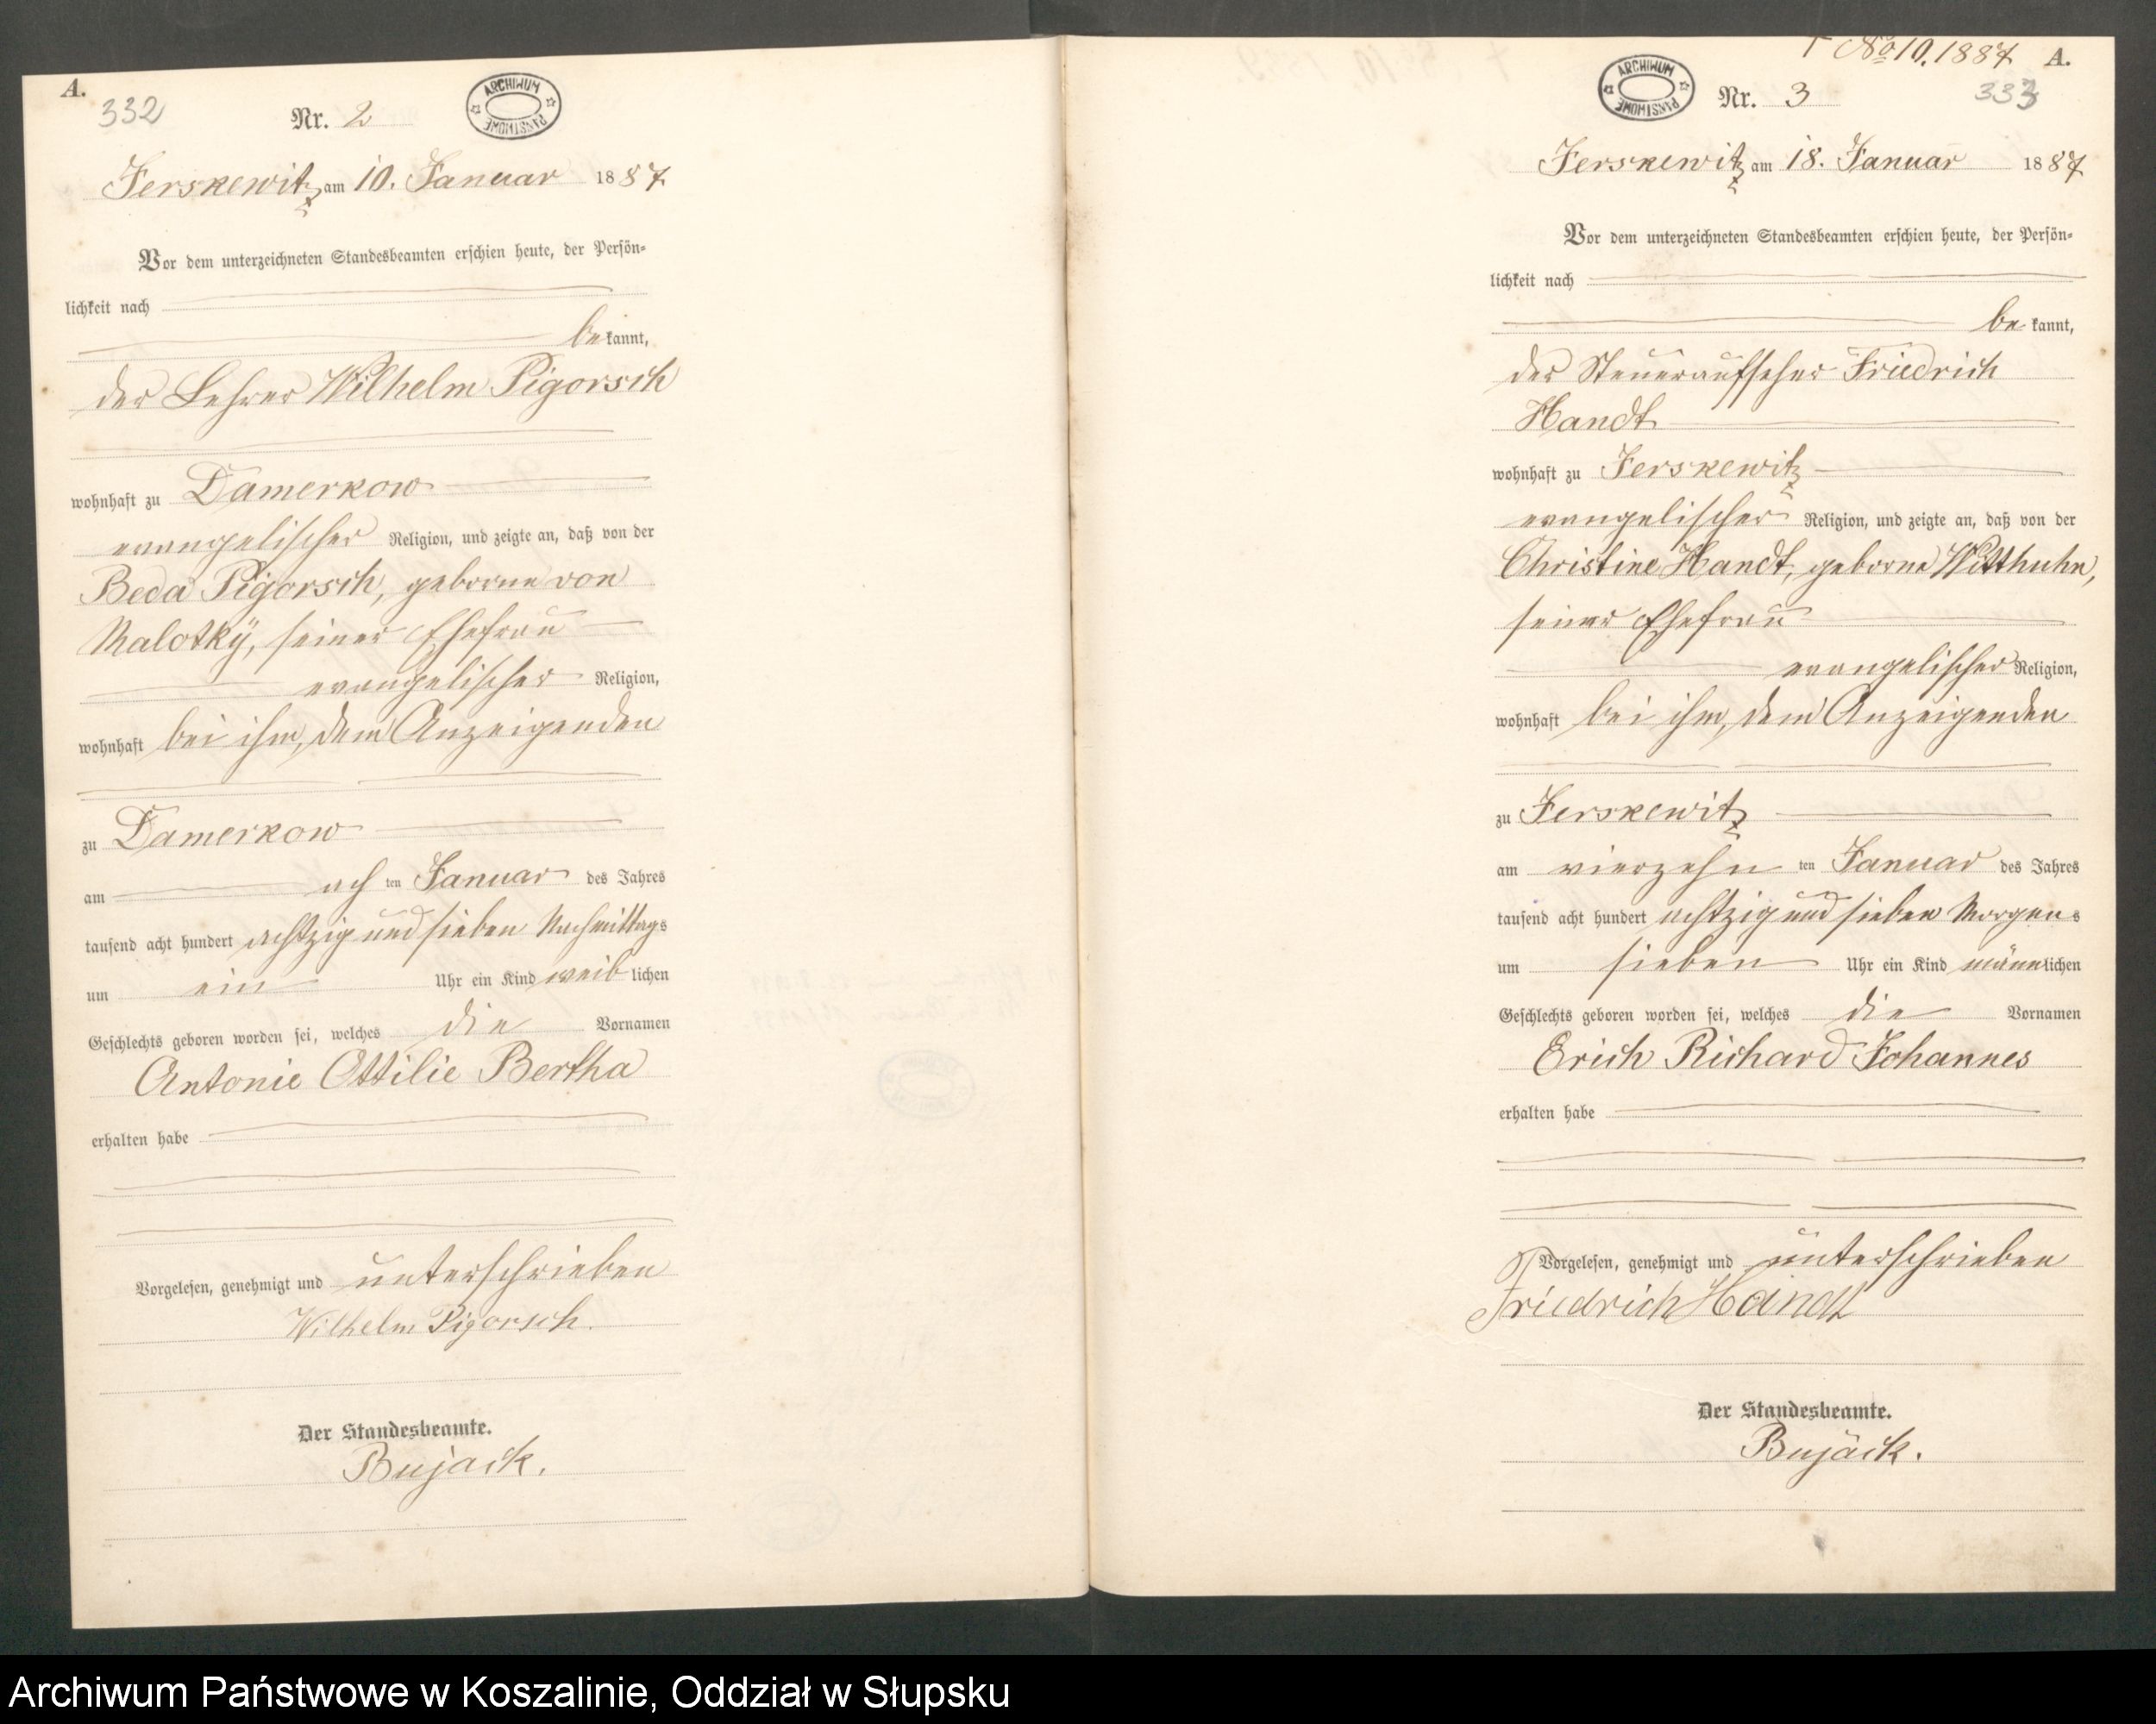 A.
332
Nr. 2
ARCHIWUM PAŃSTWOWE
Jerskewitz am 10. Januar 1887
Vor dem unterzeichneten Standesbeamten erschien heute, der Persön-
lichkeit nach
be kannt,
der Lehrer Wilhelm Pigorsch
wohnhaft zu Damerkow
evangelischer Religion, und zeigte an, daß von der
Beda Pigorsch, geborne von
Malotky, seiner Ehefrau
evangelischer Religion,
wohnhaft bei ihm, dem Anzeigenden
zu Damerkow
am ach ten Januar des Jahres
tausend acht hundert achtzig und sieben Nachmittags
um ein Uhr ein Kind weib lichen
Geschlechts geboren worden sei, welches die Vornamen
Antonie Ottilie Bertha
erhalten habe
Vorgelesen, genehmigt und unterschrieben
Wilhelm Pigorsch.
Der Standesbeamte.
Bujack.
† No 10. 1887 A.
333
ARCHIWUM PAŃSTWOWE
Nr. 3
Jerskewitz am 18. Januar 1887
Vor dem unterzeichneten Standesbeamten erschien heute, der Persön-
lichkeit nach
be kannt,
der Steueraufseher Friedrich
Handt
wohnhaft zu Jerskewitz
evangelischer Religion, und zeigte an, daß von der
Christine Handt, geborne Witthuhn,
seiner Ehefrau
evangelischer Religion,
wohnhaft bei ihm, dem Anzeigenden
zu Jerskewitz
am vierzehn ten Januar des Jahres
tausend acht hundert achtzig und sieben Morgens
um sieben Uhr ein Kind männlichen
Geschlechts geboren worden sei, welches die Vornamen
Erich Richard Johannes
erhalten habe
Vorgelesen, genehmigt und unterschrieben
Friedrich Handt
Der Standesbeamte.
Bujack.
Archiwum Państwowe w Koszalinie, Oddział w Słupsku